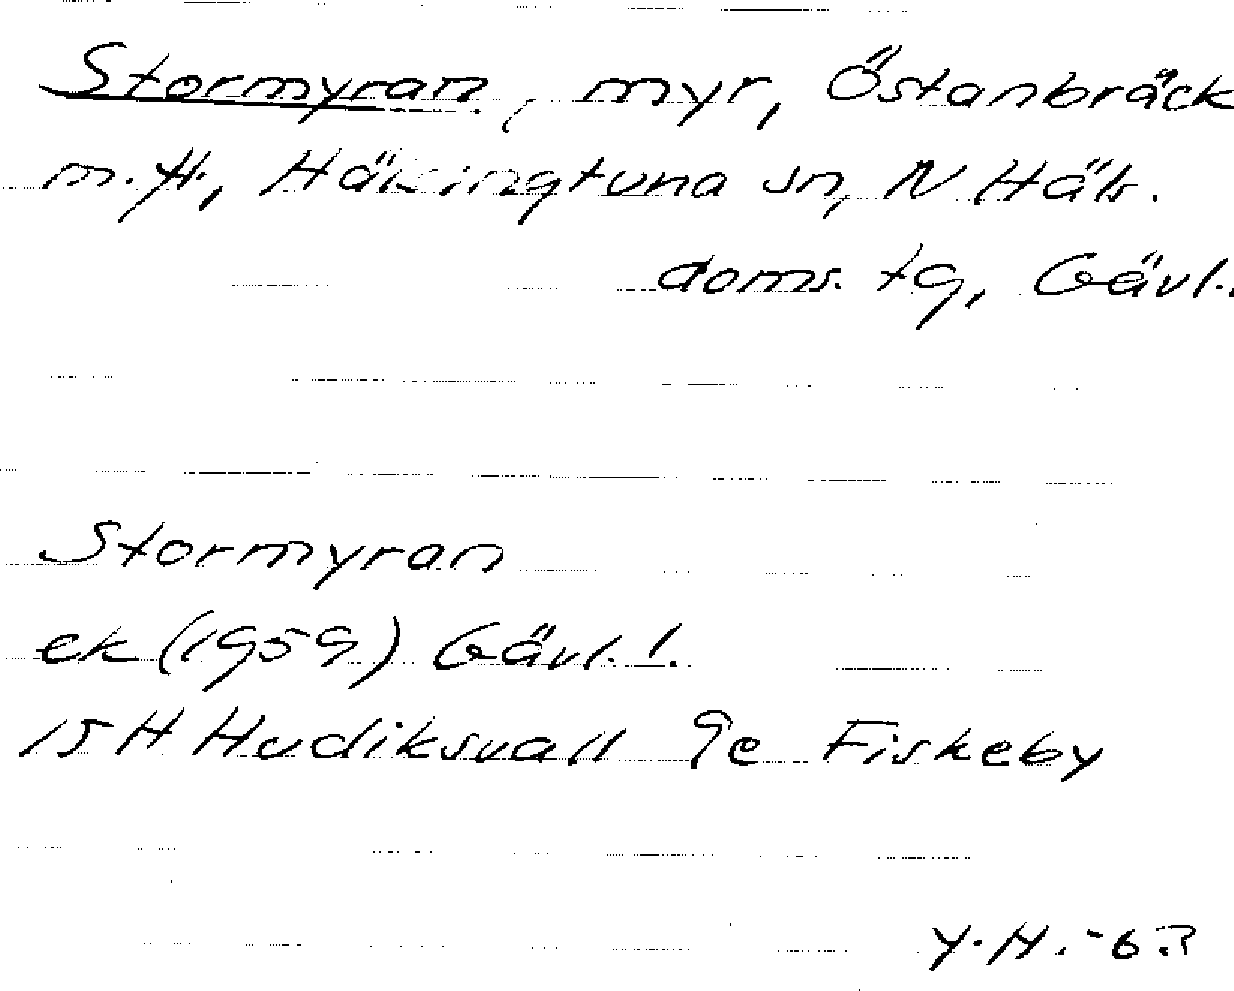 Stormyran, myr, Östanbräck
m.fl., Hälsingtuna sn, N Häls.
doms. tg, Gävl.
Stormyran
ek (1959) Gävl. l.
15H Hudiksvall 9e Fiskeby
Y.H. -63